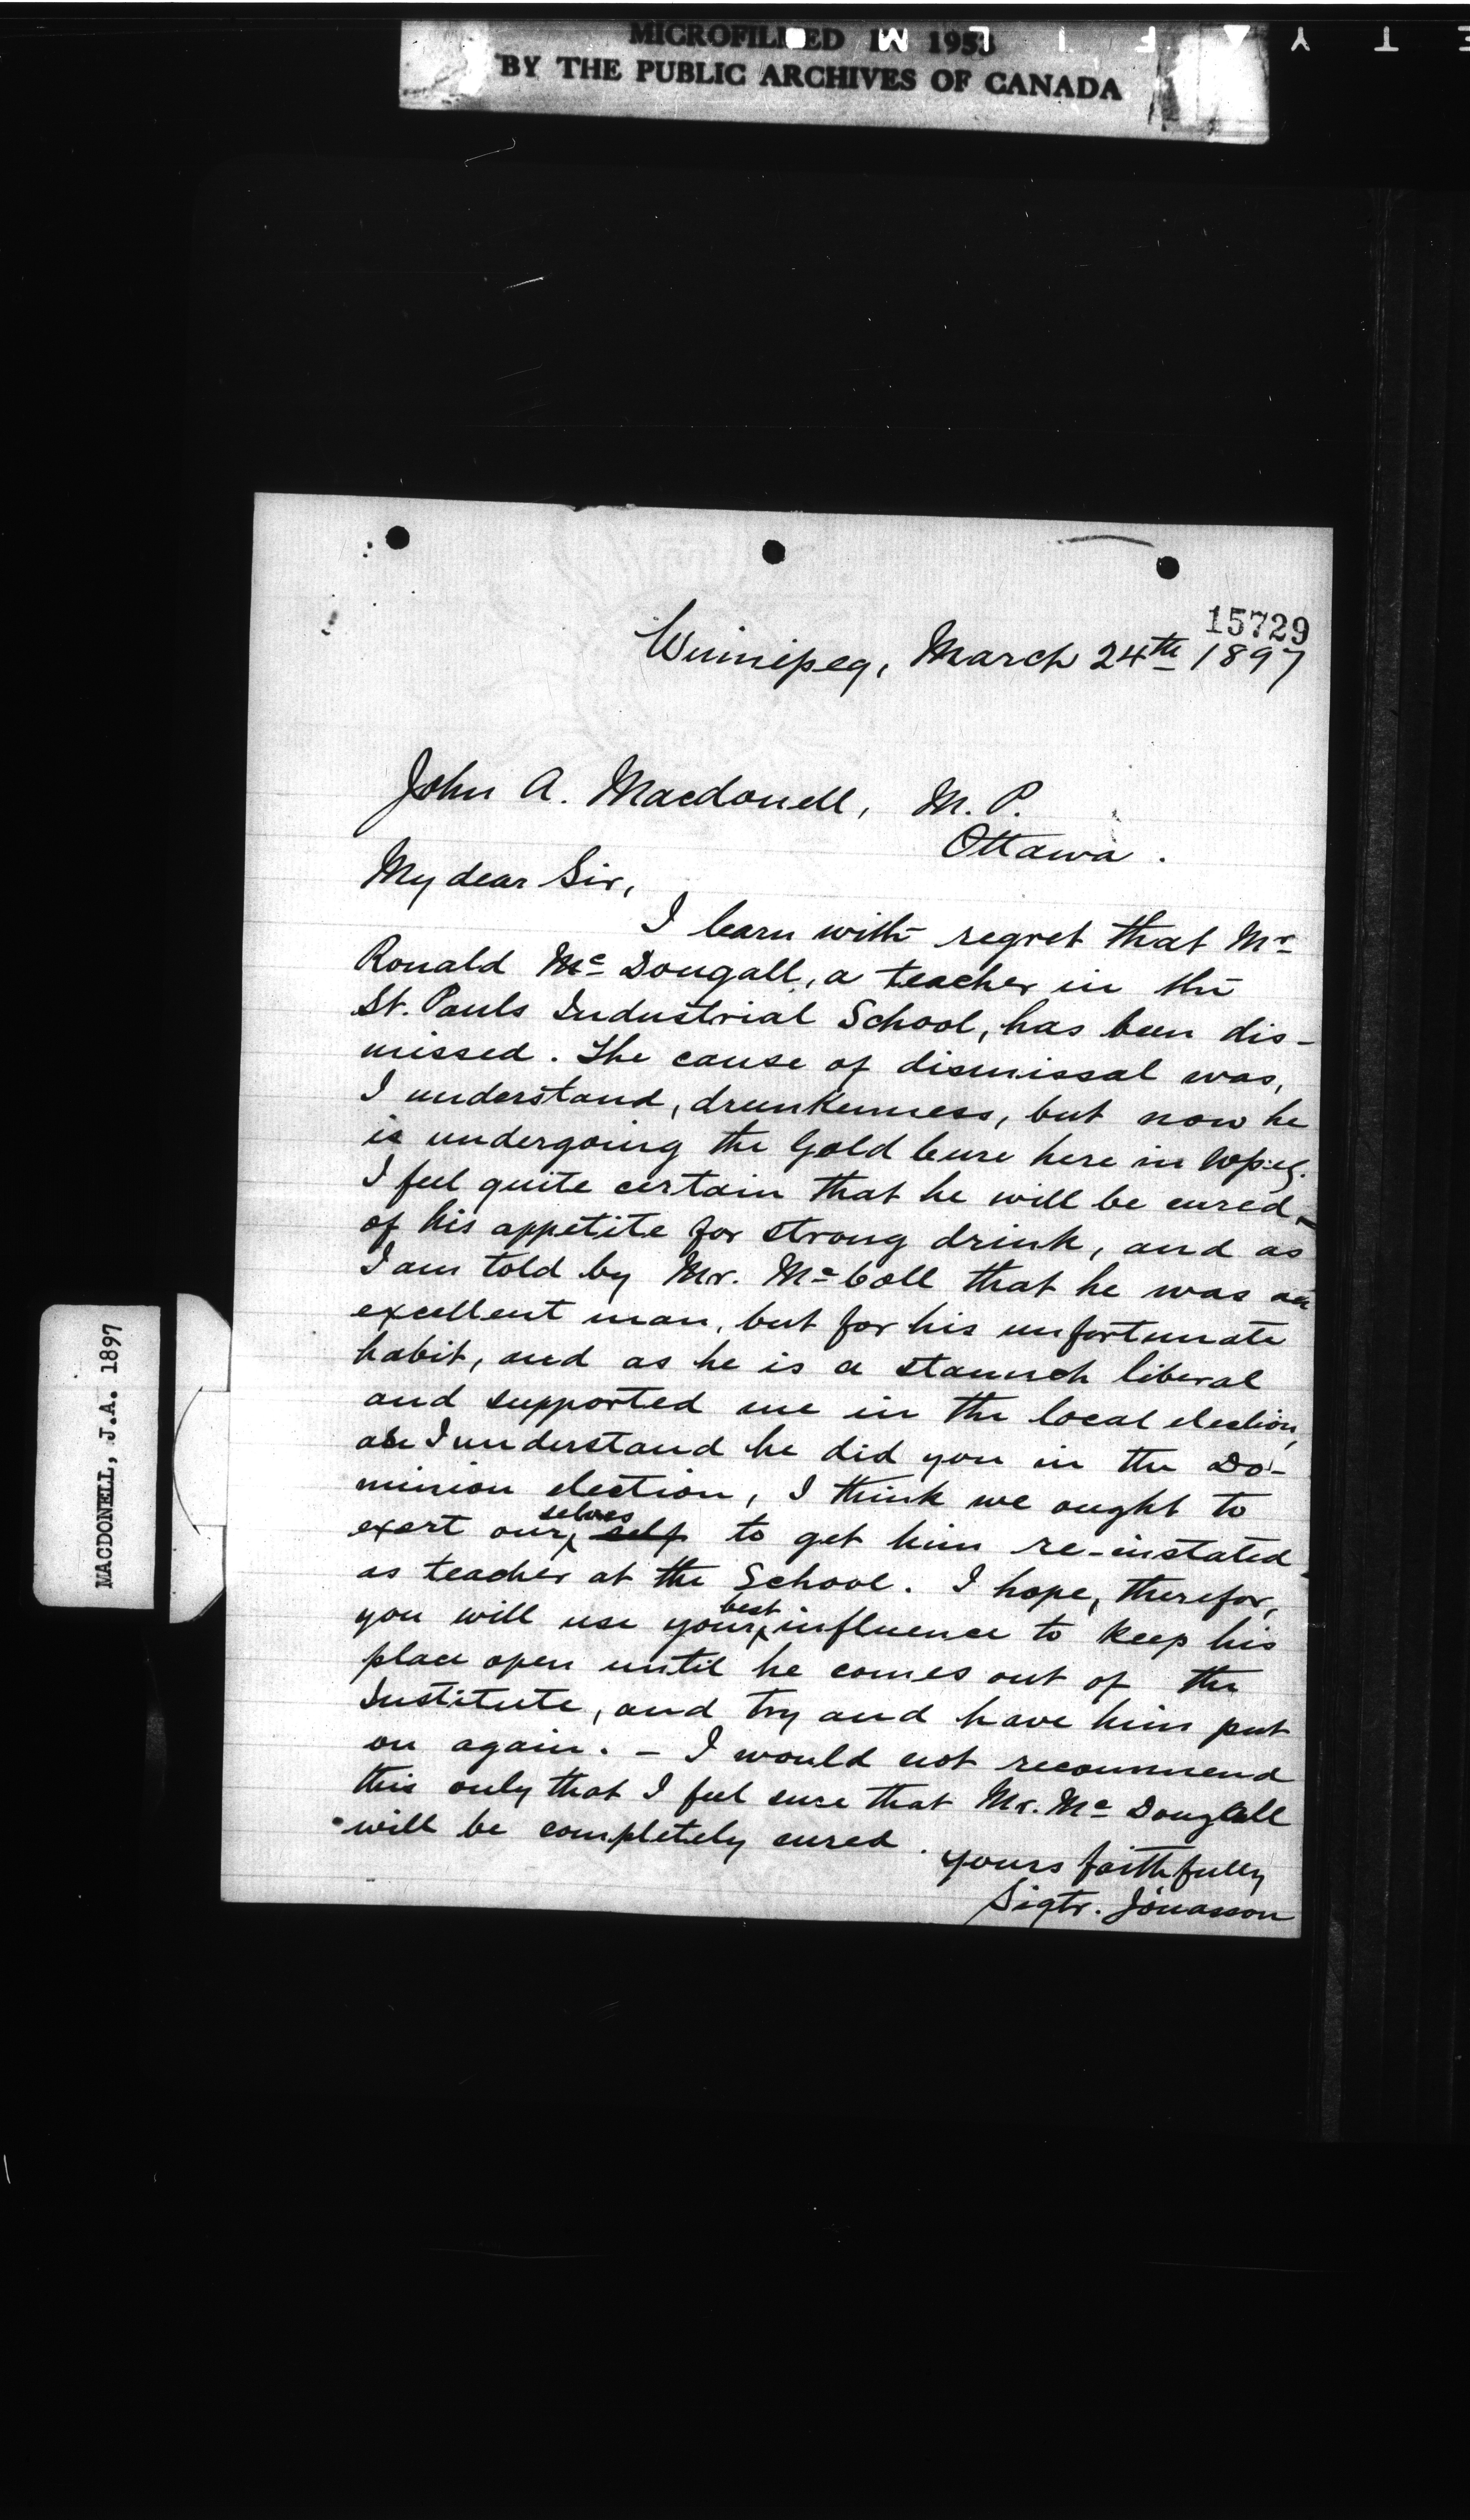 MICROFILMED IN 1953
BY THE PUBLIC ARCHIVES OF CANADA
MACDONELL, J.A. 1897
15729
Winnipeg, March 24th 1897
John A. Macdonell, M. P.
Ottawa.
My dear Sir,
I learn with regret that Mr
Ronald Mc Dougall, a teacher in the
St. Pauls Industrial School, has been dis-
missed. The cause of dismissal was,
I understand, drunkenness, but now he
is undergoing the Gold Cure here in Wpeg.
I feel quite certain that he will be cured
of his appetite for strong drink, and as
I am told by Mr. Mc Coll that he was an
excellent man, but for his unfortunate
habit, and as he is a staunch liberal
and supported me in the local election,
as I understand he did you in the Do-
minion election, I think we ought to
exert our selves self to get him re-instated
as teacher at the School. I hope, therefor,
you will use your best influence to keep his
place open until he comes out of the
Institute, and try and have him put
on again. - I would not recommend
this only that I feel sure that Mr. Mc Dougall
will be completely cured.
Yours faithfully
Sigtr. Jónasson